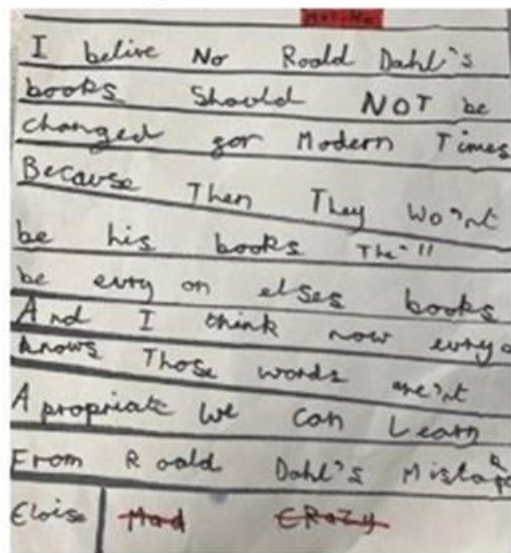 I belive No Roald Dahl's
books Should NOT be
changed gor Modern Times
Because Then They Wo'nt
be his books The'll
be evry on elses books
And I think now evryo
knows Those words are'nt
Apropriate We can Learn
From Roald Dahl's Mistake
Eloise Mad CRazy